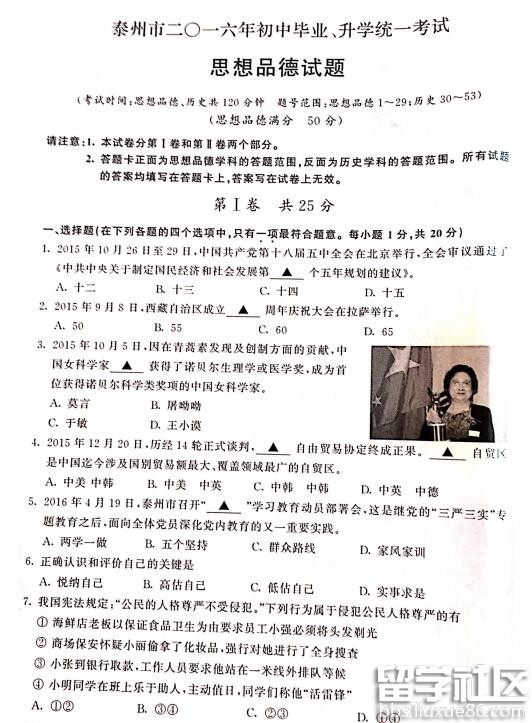 泰州市二〇一六年初中毕业、升学统一考试
思想品德试题
(考试时间:思想品德、历史共120分钟 题号范围:思想品德1~29;历史30~53)
(思想品德满分 50分)
请注意:1. 本试卷分第Ⅰ卷和第Ⅱ卷两个部分。
2. 答题卡正面为思想品德学科的答题范围,反面为历史学科的答题范围。所有试题
的答案均填写在答题卡上,答案写在试卷上无效。
第Ⅰ卷 共25分
一、选择题(在下列各题的四个选项中,只有一项最符合题意。每小题1分,共20分)
1. 2015年10月26日至29日,中国共产党第十八届五中全会在北京举行,全会审议通过了
《中共中央关于制定国民经济和社会发展第 ▲ 个五年规划的建议》。
A. 十二 B. 十三 C. 十四 D. 十五
2. 2015年9月8日,西藏自治区成立 ▲ 周年庆祝大会在拉萨举行。
A. 50 B. 55 C. 60 D. 65
3. 2015年10月5日,因在青蒿素发现及创制方面的贡献,中
国女科学家 ▲ 获得了诺贝尔生理学或医学奖,成为首
位获得诺贝尔科学类奖项的中国女科学家。
A. 莫言 B. 屠呦呦
C. 于敏 D. 王小谟
4. 2015年12月20日,历经14轮正式谈判, ▲ 自由贸易协定终成正果。 ▲ 自贸区
是中国迄今涉及国别贸易额最大、覆盖领域最广的自贸区。
A. 中美 中美 B. 中澳 中韩 C. 中韩 中韩 D. 中英 中德
5. 2016年4月19日,泰州市召开“ ▲ ”学习教育动员部署会,这是继党的“三严三实”专
题教育之后,面向全体党员深化党内教育的又一重要实践。
A. 两学一做 B. 五个坚持 C. 群众路线 D. 家风家训
6. 正确认识和评价自己的关键是
A. 悦纳自己 B. 高估自己 C. 低估自己 D. 实事求是
7. 我国宪法规定:“公民的人格尊严不受侵犯。”下列行为属于侵犯公民人格尊严的有
① 海鲜店老板以保证食品卫生为由要求员工小强必须将头发剃光
② 商场保安怀疑小丽偷拿了化妆品,强行对她进行了全身搜查
③ 小张到银行取款,工作人员要求他站在一米线外排队等候
④ 小明同学在班上乐于助人、主动值日,同学们称他“活雷锋”
A. ①② B. ③④ C. ②③ D. ①④
留学社区
bbs.liuxue86.com